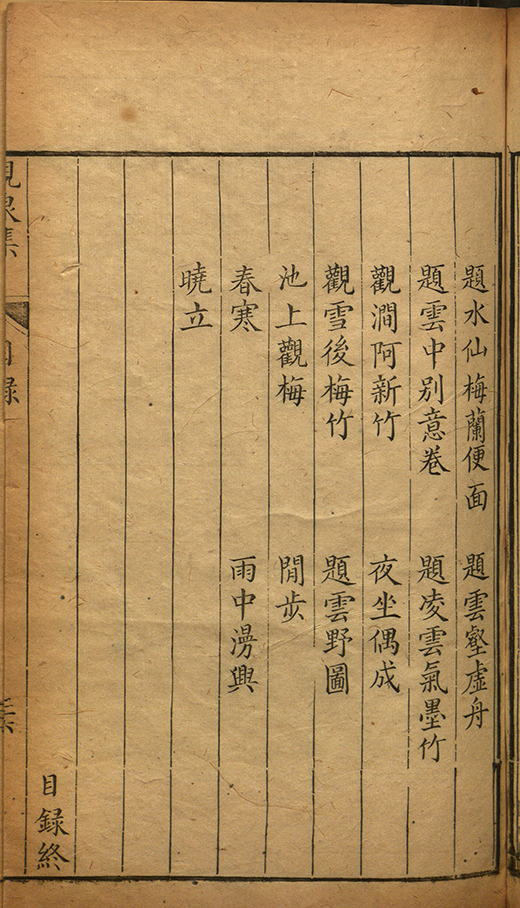 題水仙梅蘭便面　題雲壑虛舟
題雲中別意卷　題凌雲氣墨竹
觀澗阿新竹　夜坐偶成
觀雪後梅竹　題雲野圖
池上觀梅　閒步
春寒　雨中漫興
曉立
目錄終
峴泉集　目錄